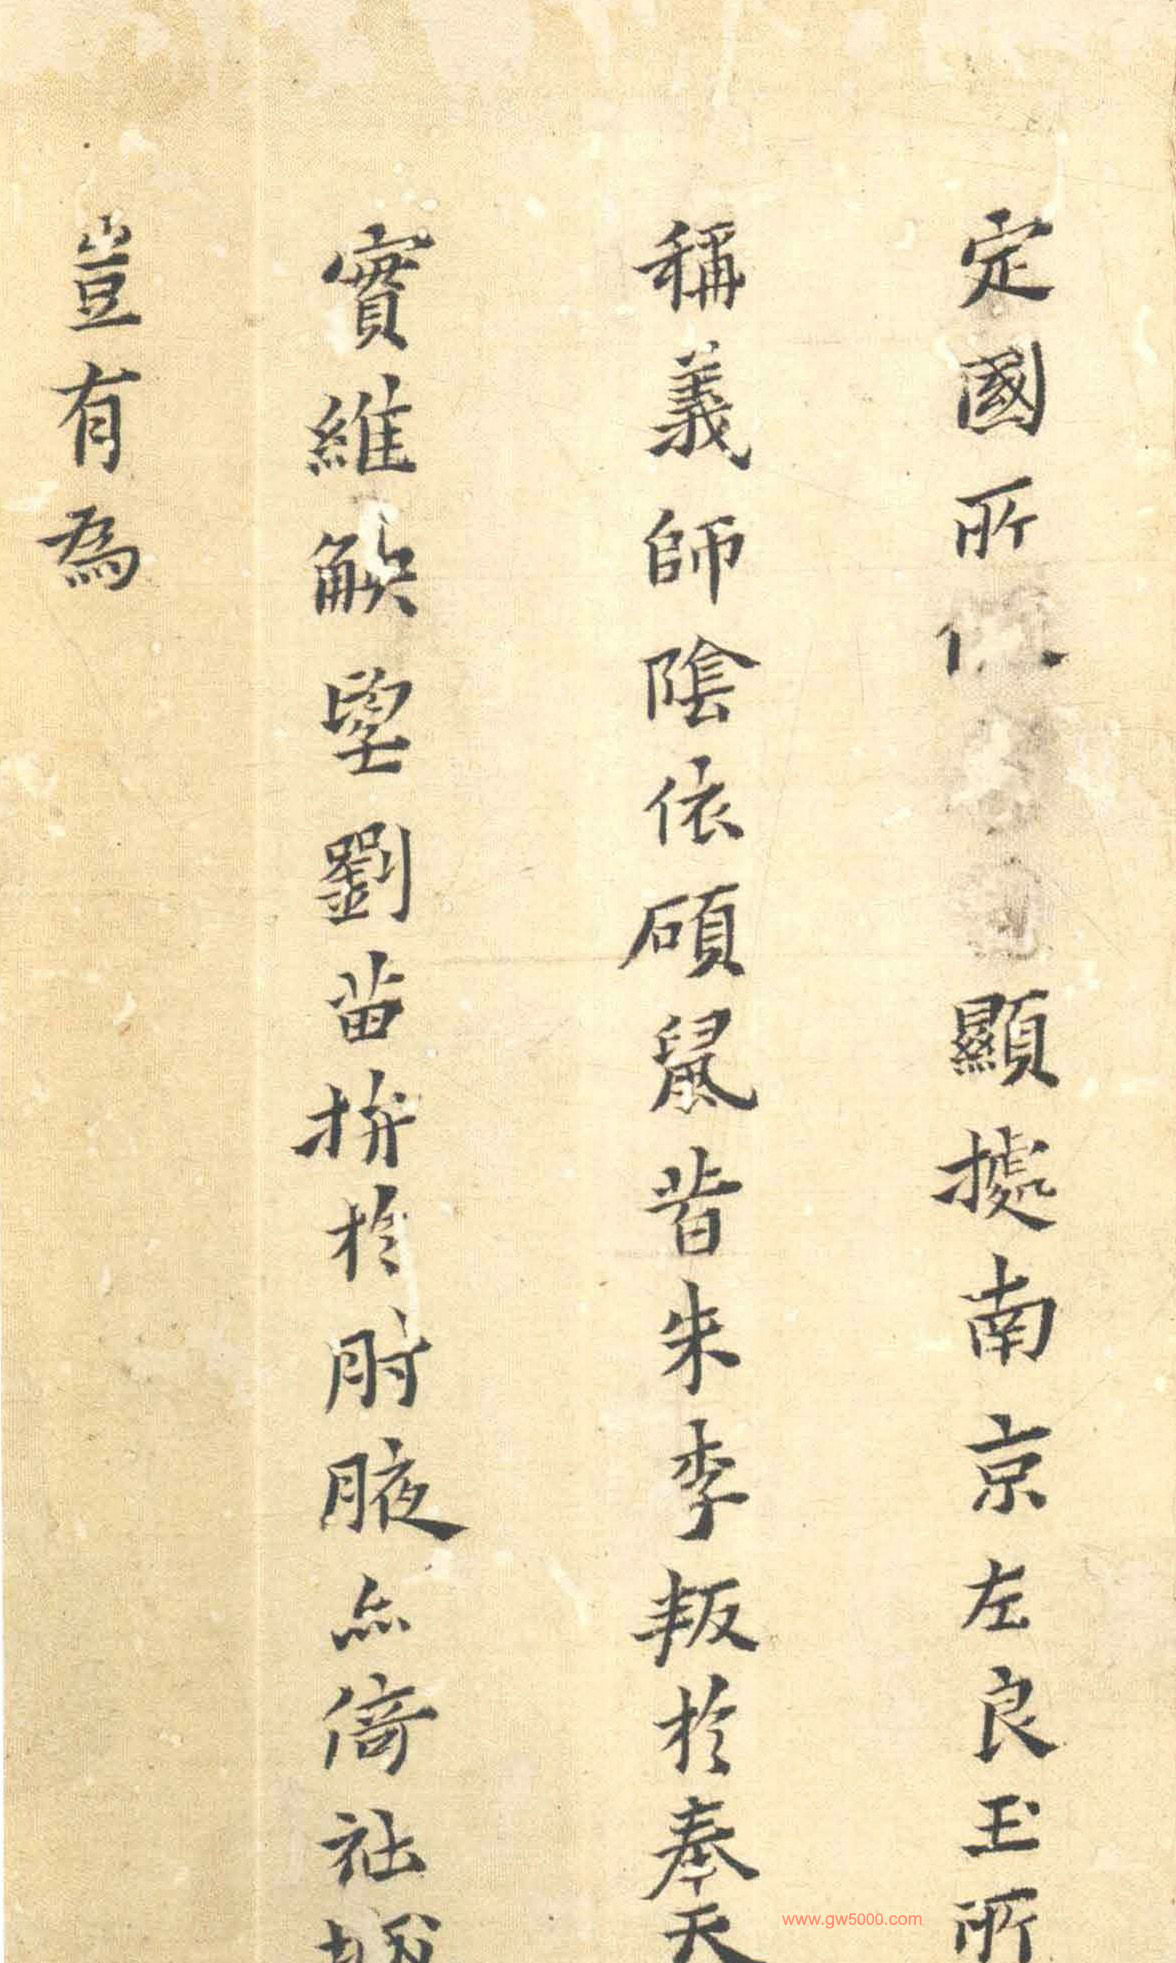 定國所顯據南京左良玉所
稱義師陰依碩鼠昔朱李叛於奉天
實維觖望劉苗拼於肘腋亦倚社
豈有為
www.gw5000.com